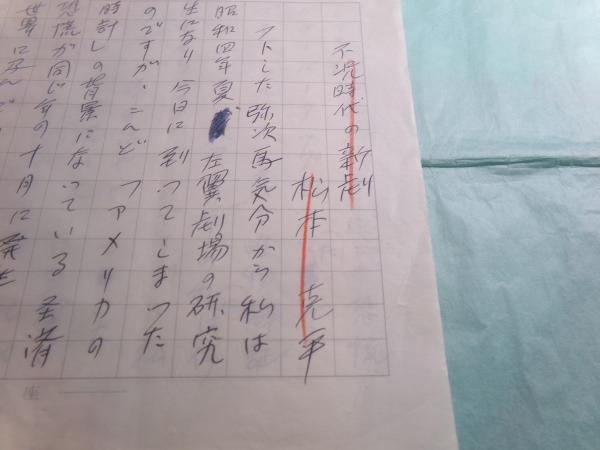 不況時代の新劇
松本 克平
フトした弥次馬気分から私は
昭和四年夏 左翼劇場の研究
生になり 今日に到ってしまった
のですが、こんど 「アメリカの
時計」の背景になっている 経済
恐慌が同じ年の十月に発生
世界に
座